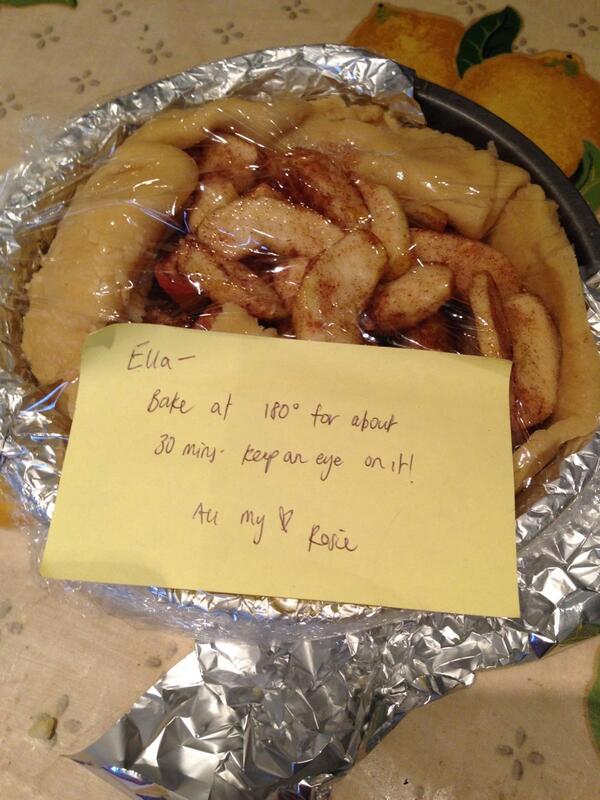 Ella -
Bake at 180° for about
30 mins - keep an eye on it!
All my ♡
Rosie